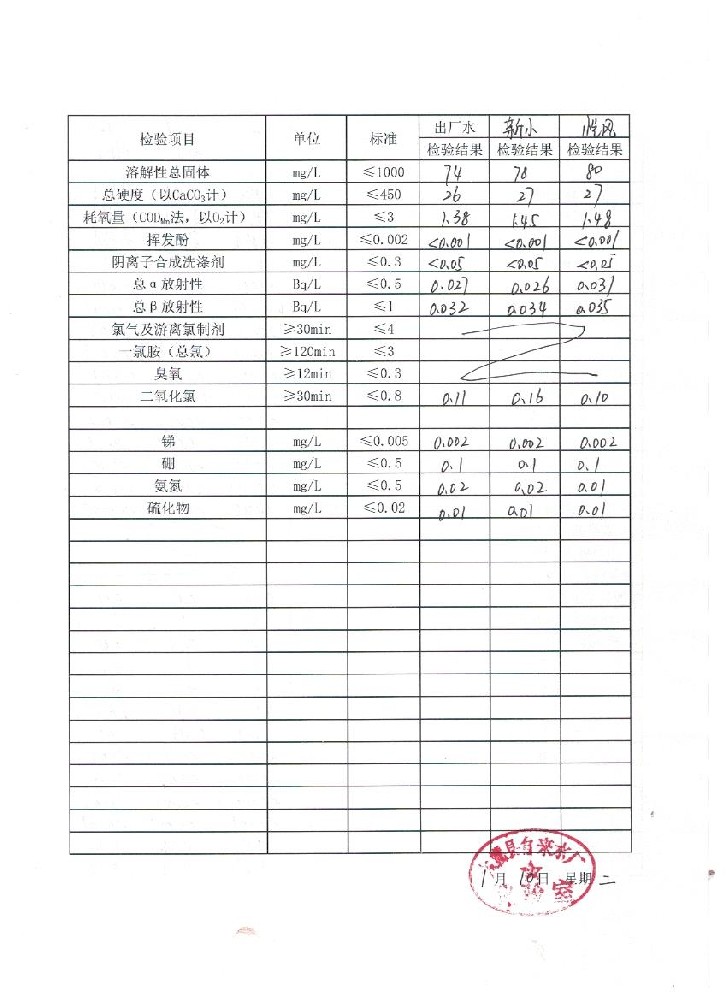 检验项目 单位 标准 出厂水 新小
检验结果 检验结果 检验结果
溶解性总固体 mg/L ≤1000 74 78 80
总硬度（以CaCO3计） mg/L ≤450 26 27 27
耗氧量（CODMn法，以O2计） mg/L ≤3 1.38 1.45 1.48
挥发酚 mg/L ≤0.002 <0.001 <0.001 <0.001
阴离子合成洗涤剂 mg/L ≤0.3 <0.05 <0.05 <0.05
总α放射性 Bq/L ≤0.5 0.027 0.026 0.031
总β放射性 Bq/L ≤1 0.032 0.034 0.035
氯气及游离氯制剂 ≥30min ≤4
一氯胺（总氯） ≥120min ≤3
臭氧 ≥12min ≤0.3
二氧化氯 ≥30min ≤0.8 0.11 0.16 0.10
锑 mg/L ≤0.005 0.002 0.002 0.002
硼 mg/L ≤0.5 0.1 0.1 0.1
氨氮 mg/L ≤0.5 0.02 0.02 0.01
硫化物 mg/L ≤0.02 0.01 0.01 0.01
县自来水厂
1月10日 星期二
化验室